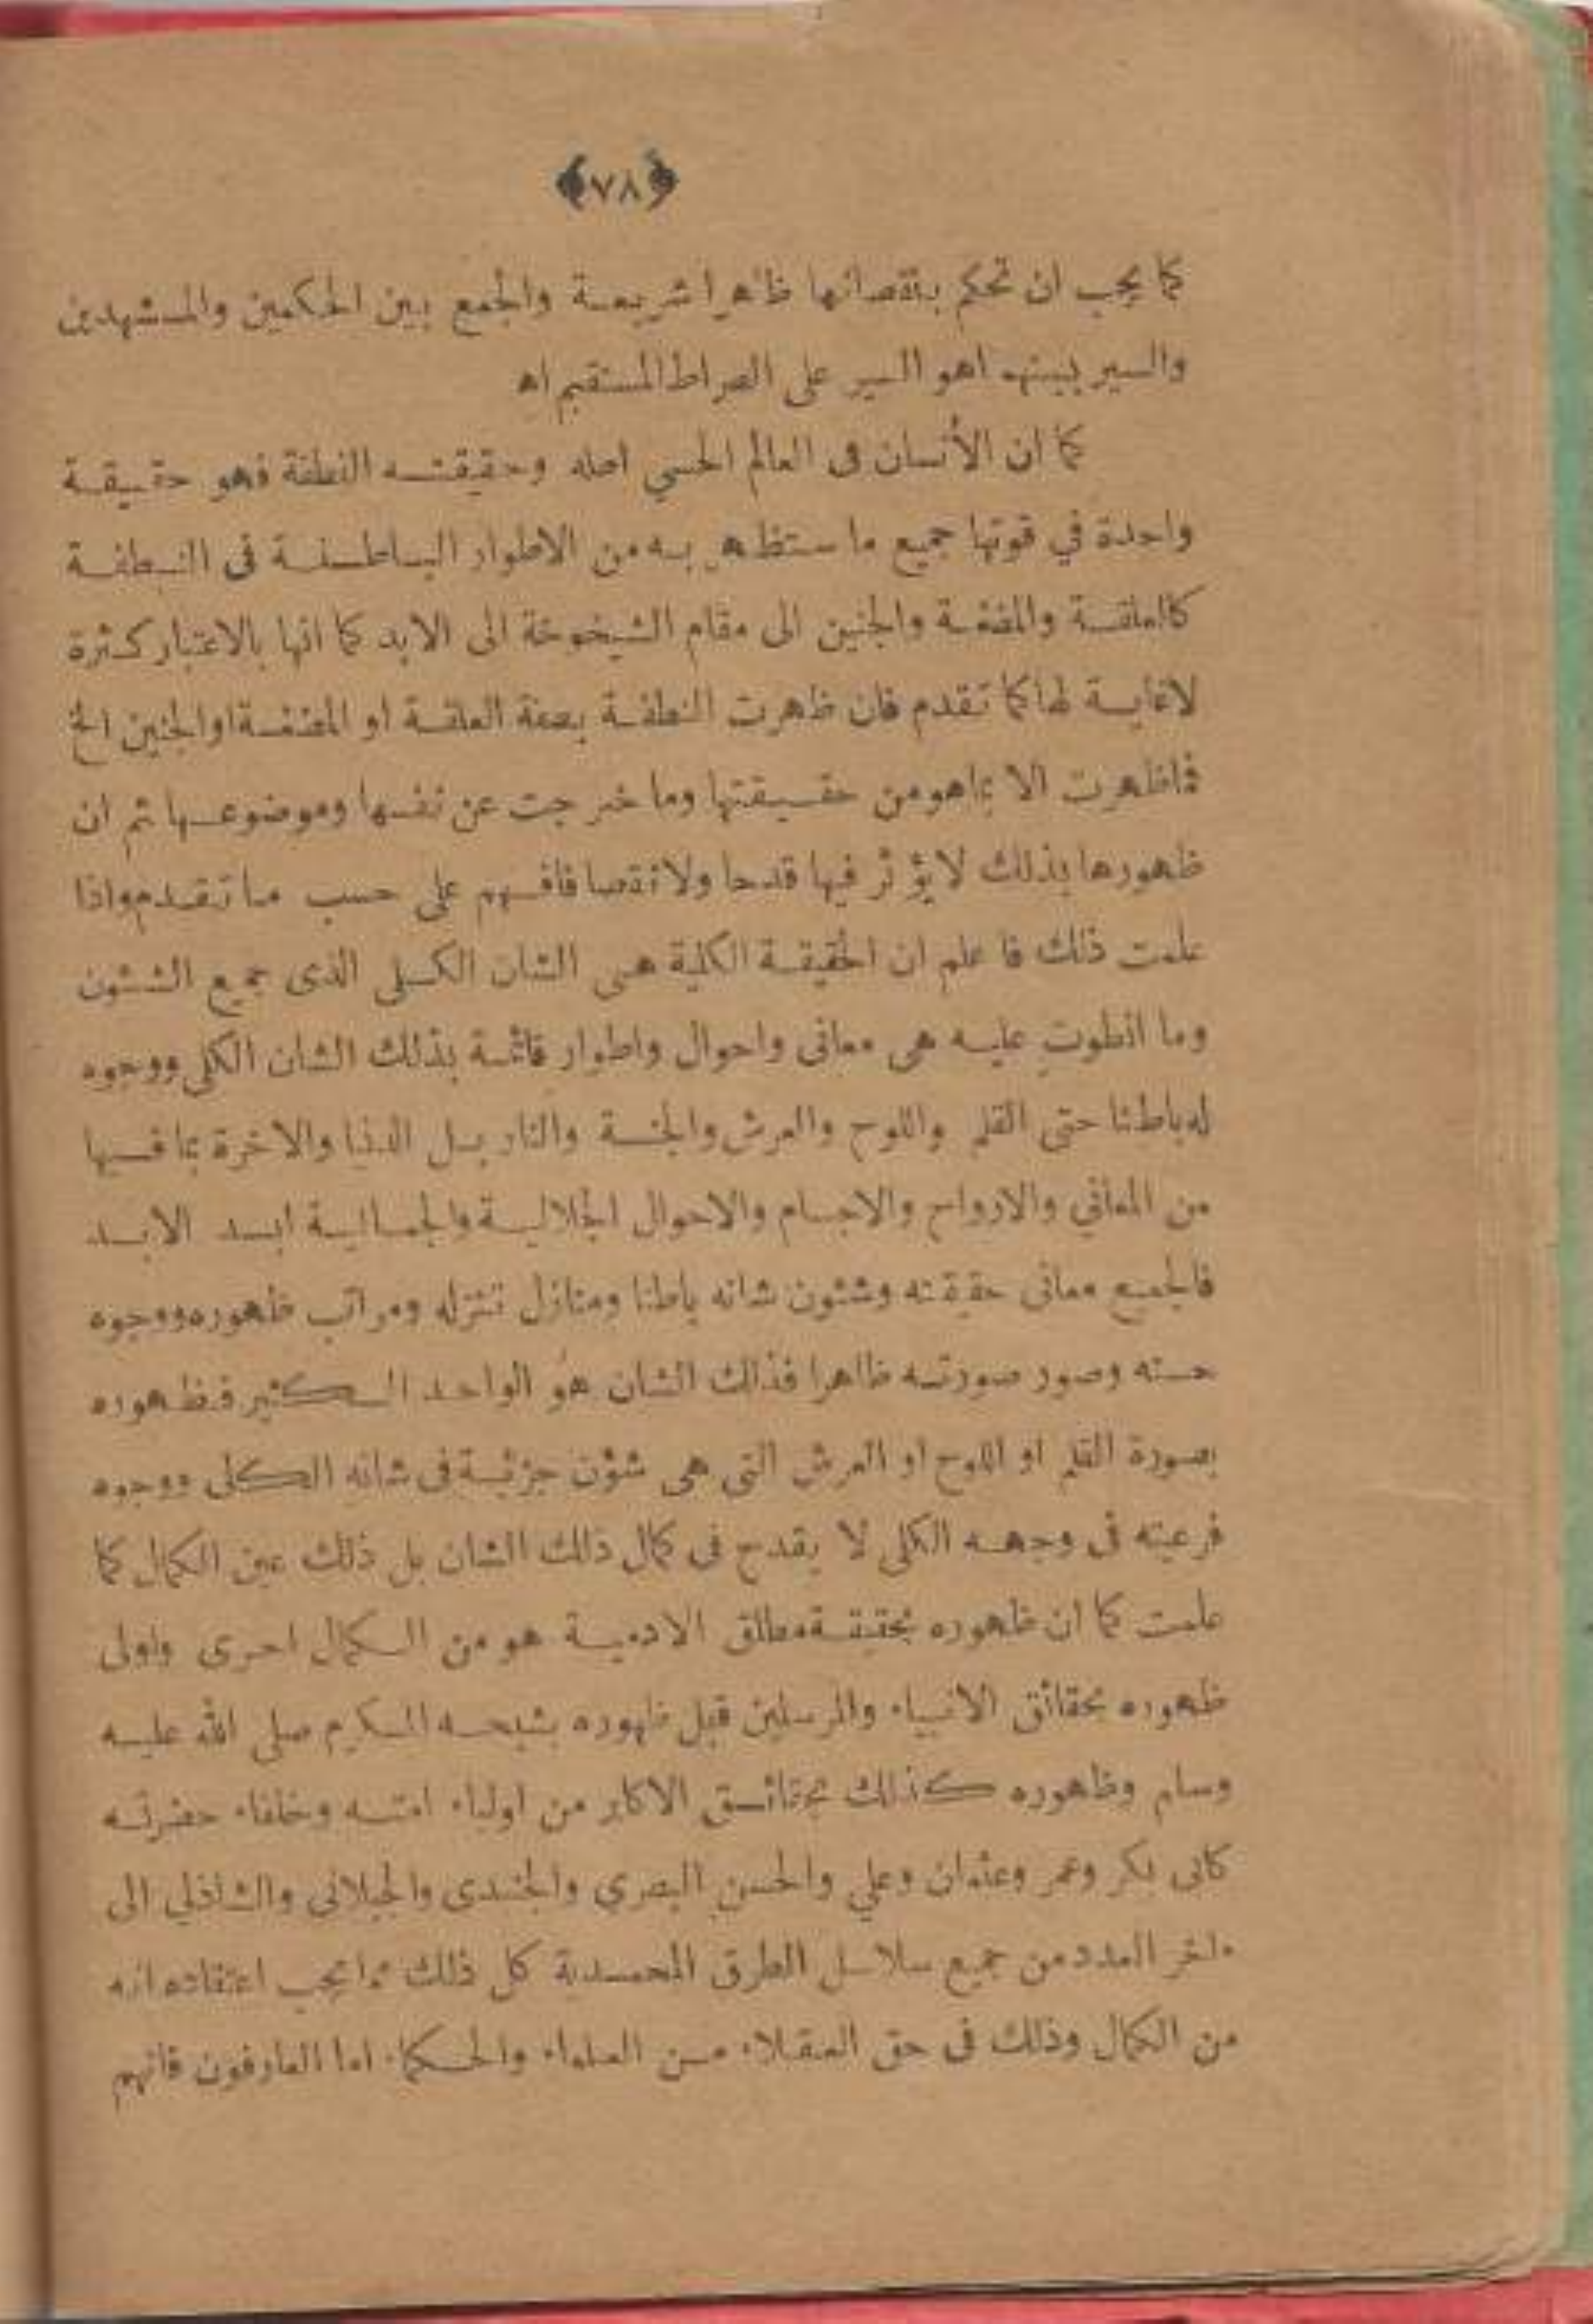 ﴿٧٨﴾
كما يجب ان تحكم بنقصانها ظاهرا شريعة والجمع بين الحكمين والمشهدين
والسير بينهما هو السير على الصراط المستقيم اه
كما ان الأنسان فى العالم الحسي اصله وحقيقته النطفة فهو حقيقة
واحدة في قوتها جميع ما ستظهر به من الاطوار الباطنة فى النطفة
كالعلقة والمضغة والجنين الى مقام الشيخوخة الى الابد كما انها بالاعتبار كثرة
لاغاية لها كما تقدم فان ظهرت النطفة بصفة العلقة او المضغة او الجنين الخ
فما ظهرت الا بما هو من حقيقتها وما خرجت عن نفسها وموضوعها ثم ان
ظهورها بذلك لا يؤثر فيها قدحا ولا نقصا فافهم على حسب ما تقدم واذا
علمت ذلك فاعلم ان الحقيقة الكلية هى الشان الكلى الذى جميع الشئون
وما انطوت عليه هى معانى واحوال واطوار قائمة بذلك الشان الكلى ووجوه
له باطنا حتى القلم واللوح والعرش والجنة والنار بل الدنيا والاخرة بما فيها
من المعاني والارواح والاجسام والاحوال الجلالية والجمالية ابد الابد
فالجميع معانى حقيقته وشئون شانه باطنا ومنازل تنزله ومراتب ظهوره ووجوه
حسنه وصور صورته ظاهرا فذلك الشان هو الواحد الكثير فظهوره
بصورة القلم او اللوح او العرش التى هى شؤن جزئية فى شانه الكلى ووجوه
فرعيته فى وجهه الكلى لا يقدح فى كمال ذلك الشان بل ذلك عين الكمال كما
علمت كما ان ظهوره بحقيقة مطلق الادمية هو من الكمال احرى واولى
ظهوره بحقائق الانبياء والمرسلين قبل ظهوره بشبحه المكرم صلى الله عليه
وسلم وظهوره كذلك بحقائق الاكابر من اولياء امته وخلفاء حضرته
كابى بكر وعمر وعثمان وعلي والحسن البصري والجنيدى والجيلانى والشاذلي الى
ءاخر العدد من جميع سلاسل الطرق المحمدية كل ذلك مما يجب اعتقاده انه
من الكمال وذلك فى حق العقلاء من العلماء والحكماء اما العارفون فانهم